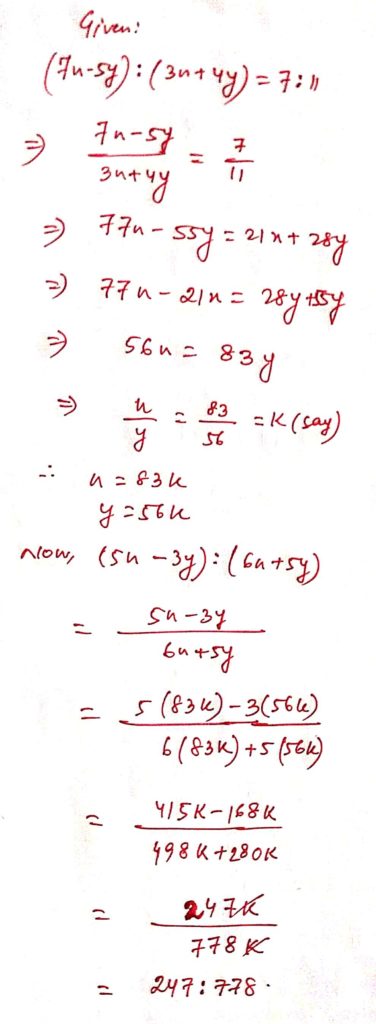 Given:
(7x-5y):(3x+4y) = 7:11
⇒ 7x-5y / 3x+4y = 7/11
⇒ 77x - 55y = 21x + 28y
⇒ 77x - 21x = 28y + 55y
⇒ 56x = 83y
⇒ x/y = 83/56 = K (say)
∴ x = 83k
y = 56k
Now, (5x - 3y):(6x+5y)
= 5x-3y / 6x+5y
= 5(83k)-3(56k) / 6(83k)+5(56k)
= 415K-168K / 498K+280K
= 247K / 778K
= 247:778.